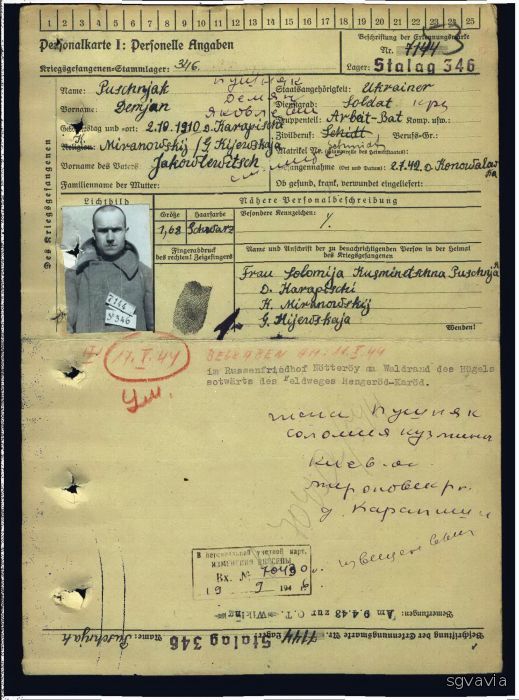 1 2 3 4 5 6 7 8 9 10 11 12 13 14 15 16 17 18 19 20 21 22 23 24 25
Personalkarte I: Personelle Angaben
Kriegsgefangenen-Stammlager: 346
Beschriftung der Erkennungsmarke
Nr. 7144
Lager: Stalag 346
Des Kriegsgefangenen
Name: Puschnjak Пушняк
Vorname: Demjan Демян
Geburtstag und -ort: 2.10.1910 D. Karapischi
Religion: K. Miranowskij G. Kijewskaja
Vorname des Vaters: Jakowlewitsch
Familienname der Mutter:
Staatsangehörigkeit: Ukrainer
Dienstgrad: Soldat кр
Truppenteil: Arbat-Bat Komp. usw.:
Zivilberuf: Schmidt Berufs-Gr.:
Matrikel Nr.
Gefangennahme (Ort und Datum): 2.7.42 D. Konowalowka
Ob gesund, krank, verwundet eingeliefert:
Lichtbild
7144
St 346
Nähere Personalbeschreibung
Größe Haarfarbe Besondere Kennzeichen:
1,68 Schwarz
Fingerabdruck
des rechten! Zeigefingers
Name und Anschrift der zu benachrichtigenden Person in der Heimat
des Kriegsgefangenen
Frau Solomija Kusminetschna Puschnjak
D. Karapischi
K. Miranowskij
G. Kijewskaja
Wenden!
17.V.44
BEGRABEN AM
im Russenfriedhof Nötteröy am Waldrand des Hügels
ostwärts des Feldweges Hengeröd-Karöd.
жена Пушняк
Соломия Кузмина
Киев.
д. Карапиши
В персональной учетной карт.
изменения внесены
Вх. № 70490
19 9 1946
Bemerkungen: Am 9.4.43 zur O.T. Wiking
Name: Puschnjak
Beschriftung der Erkennungsmarke Nr. 7144 Lager: Stalag 346
sgvavia